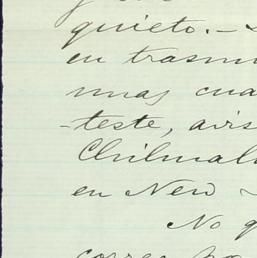 quieto.—
en trasm
unas cua
-teste, avis
Chilmal
en New
No q
corres po